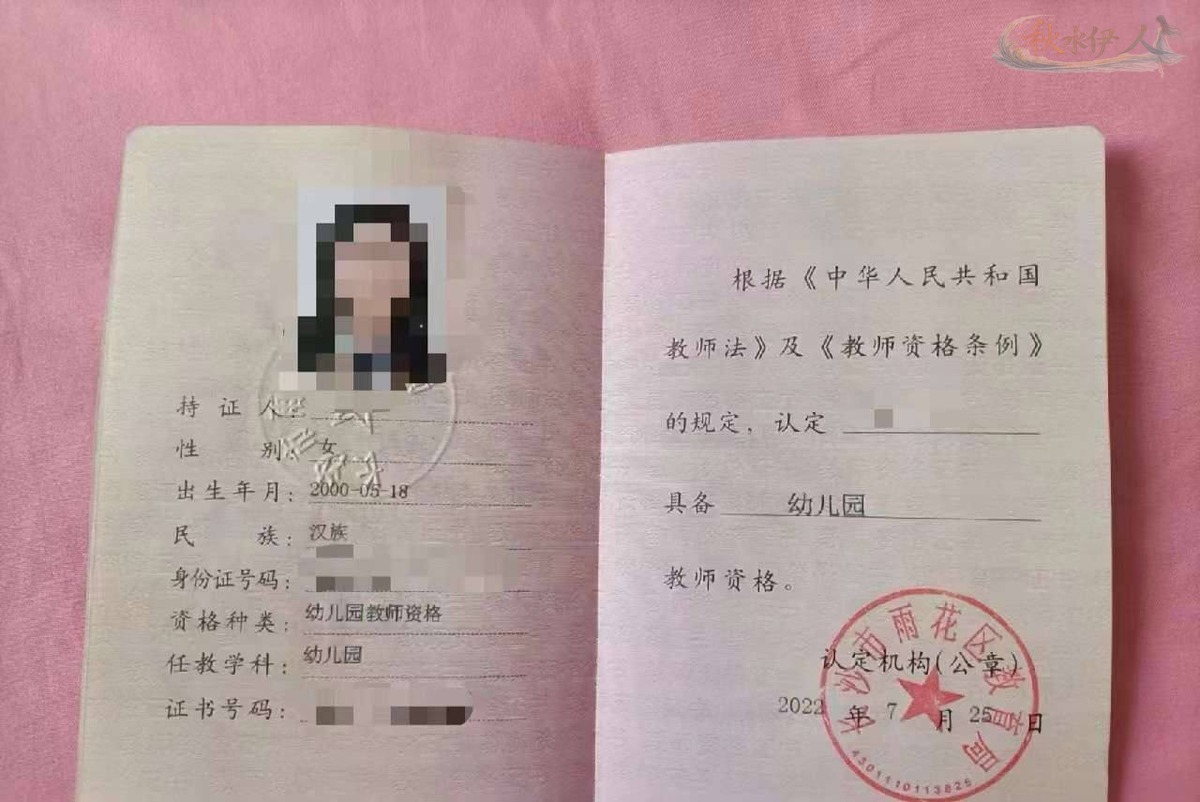 秋水伊人
持证人:
性别:女
出生年月:2000-05-18
民族:汉族
身份证号码:
资格种类:幼儿园教师资格
任教学科:幼儿园
证书号码:
根据《中华人民共和国
教师法》及《教师资格条例》
的规定,认定
具备 幼儿园
教师资格。
长沙市雨花区教育局
认定机构(公章)
2022年7月25日
4301110113825